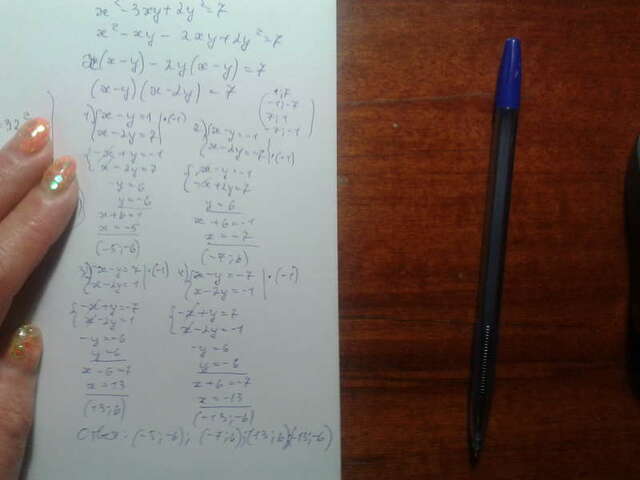 x² - 3xy + 2y² = 7
x² - xy - 2xy + 2y² = 7
x(x-y) - 2y(x-y) = 7
(x-y)(x-2y) = 7
1; 7
-1; -7
7; 1
-7; -1
1) { x-y=1 | ·(-1)
x-2y=7
{ -x+y=-1
x-2y=7
-y=6
y=-6
x+6=1
x=-5
(-5;-6)
2) { x-y=-1
x-2y=-7 | ·(-1)
{ x-y=-1
-x+2y=7
y=6
x+6=-1
x=-7
(-7;6)
3) { x-y=7 | ·(-1)
x-2y=1
{ -x+y=-7
x-2y=1
-y=-6
y=6
x-6=7
x=13
(13;6)
4) { x-y=-7 | ·(-1)
x-2y=-1
{ -x+y=7
x-2y=-1
-y=6
y=-6
x+6=-7
x=-13
(-13;-6)
Ответ: (-5;-6); (-7;6); (13;6); (-13;-6)